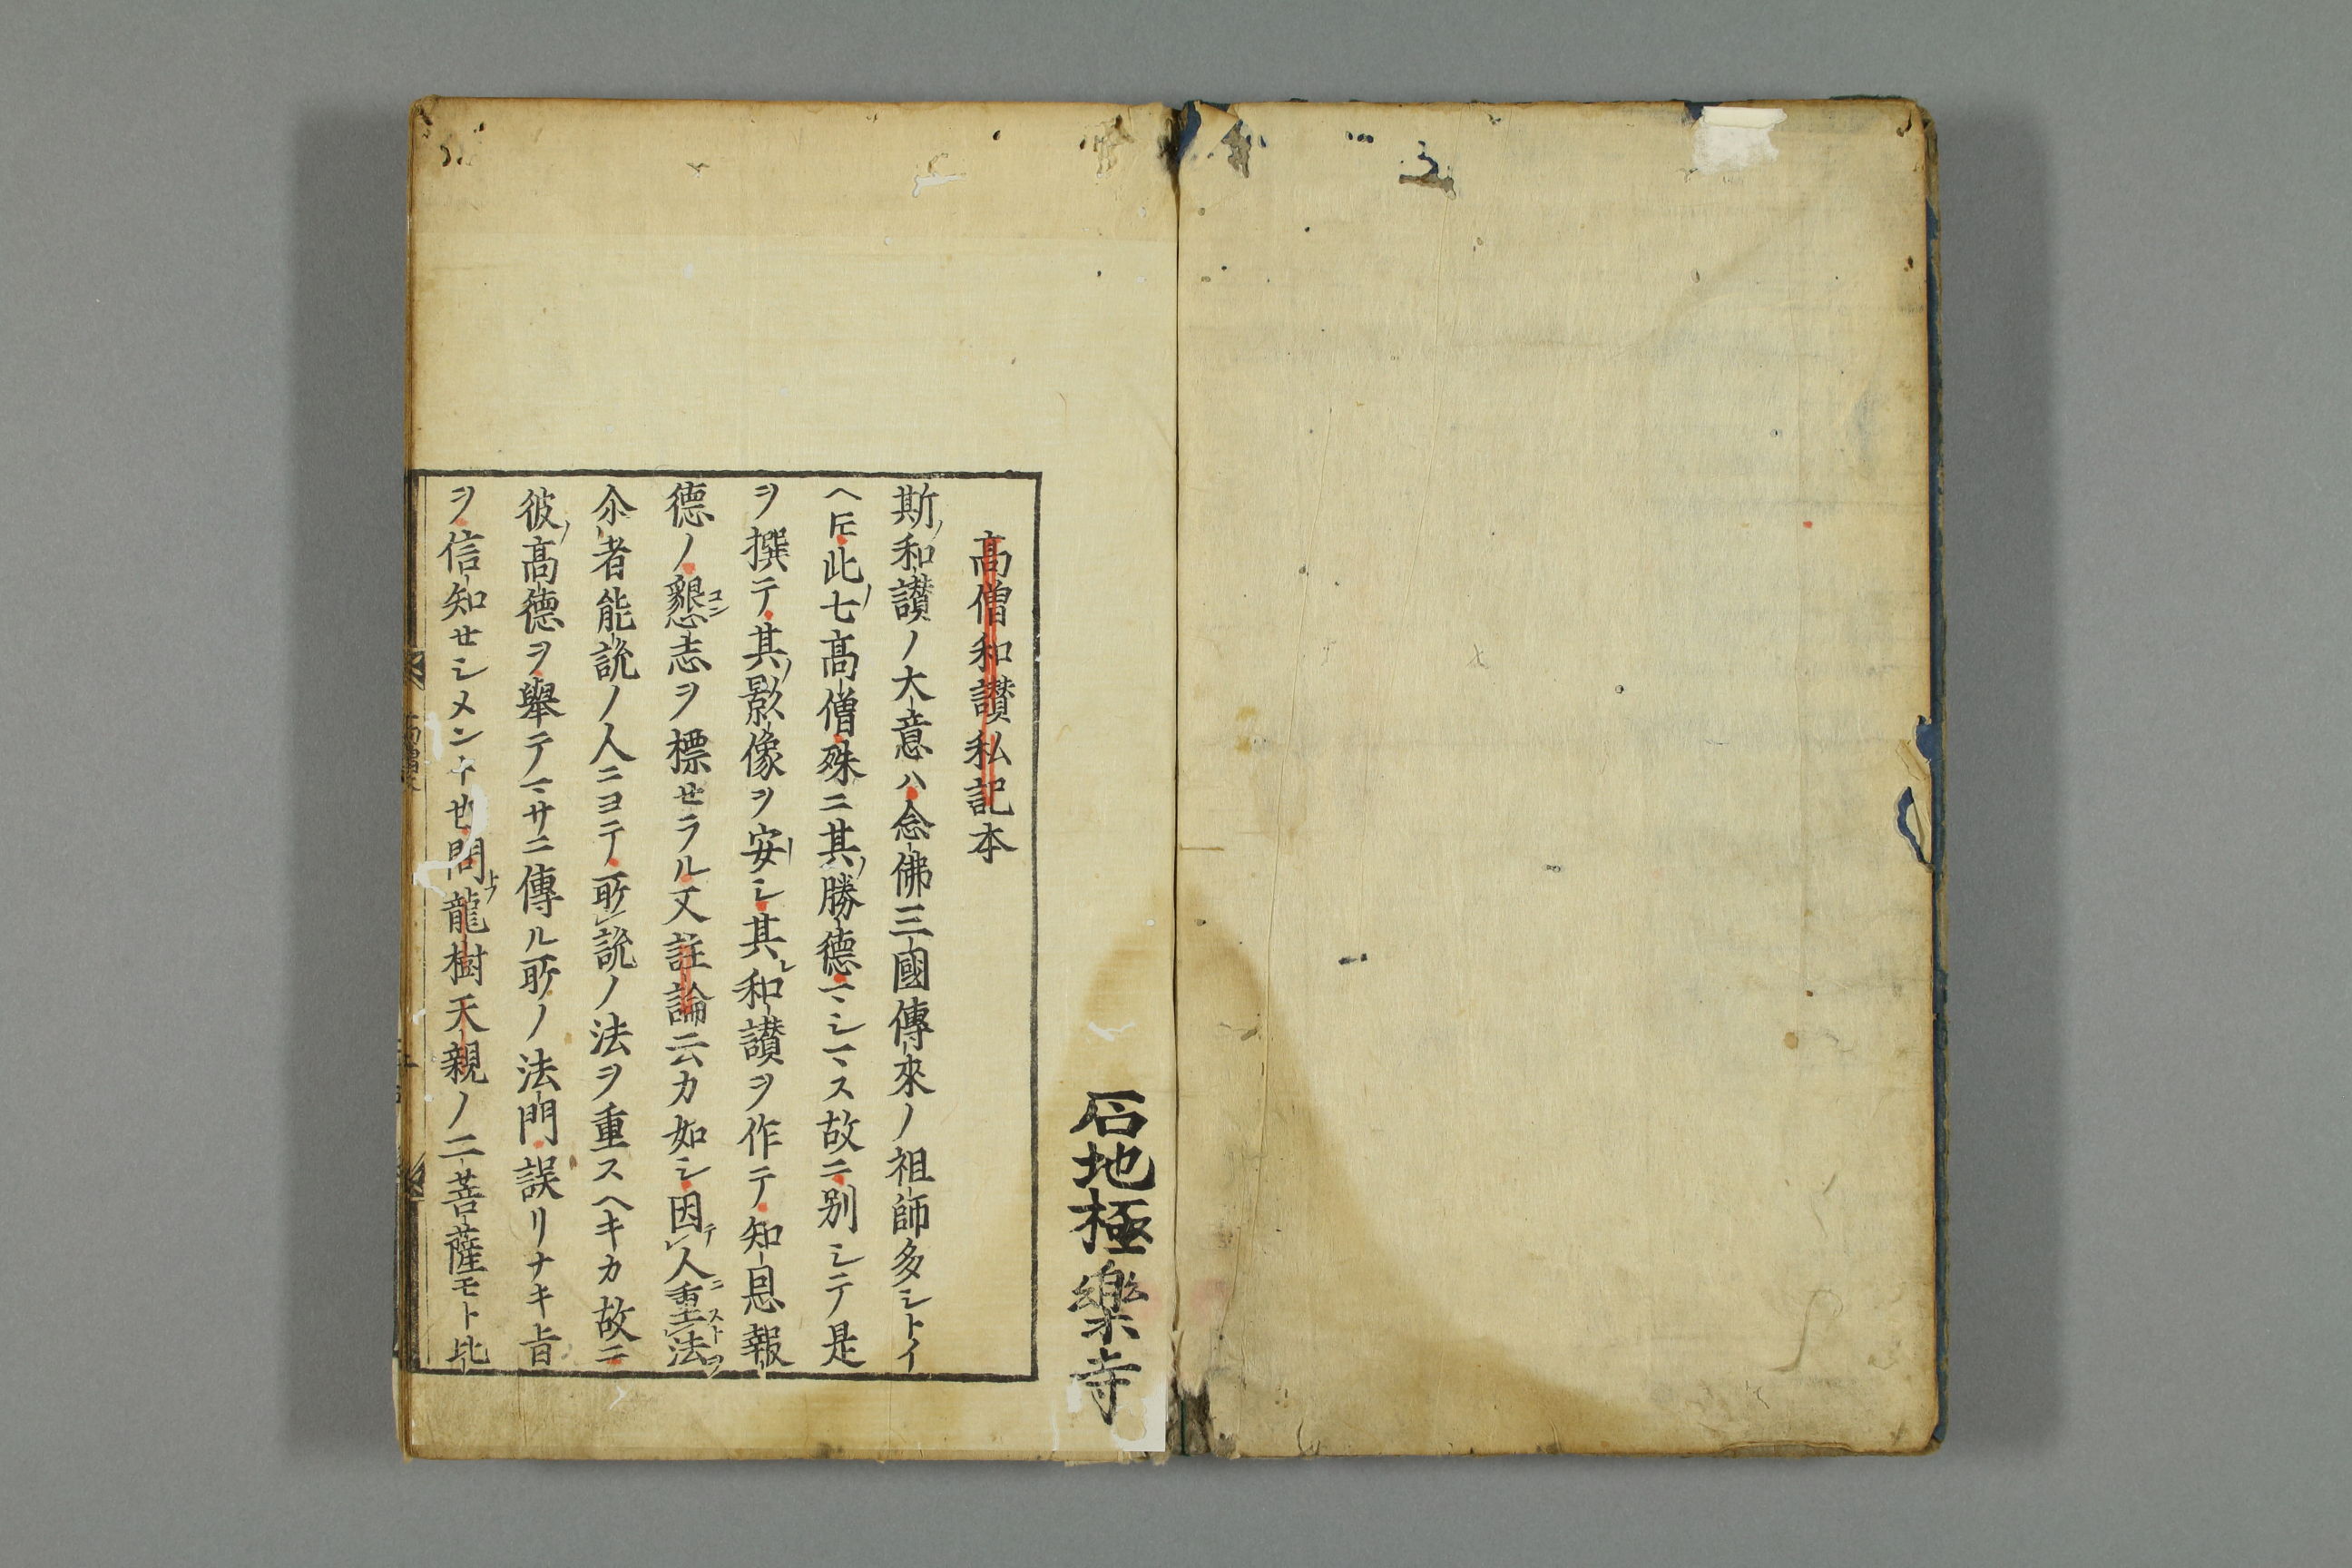 石地極樂寺
高僧和讃私記本
斯ノ和讃ノ大意ハ念佛三國傳來ノ祖師多シトイ
ヘ𪜈此ノ七高僧殊ニ其ノ勝德マシマス故ニ別シテ是
ヲ撰テ其ノ影像ヲ安シ其ノ和讃ヲ作テ知恩報
德ノ懇コン志ヲ標セラル文註論云カ如シ因テレ人ニ重スト法ヲ
尒者能説ノ人ニヨテ所レ説ノ法ヲ重スヘキカ故ニ
彼ノ高德ヲ擧テマサニ傳ル所ノ法門誤リナキ旨
ヲ信知セシメント也問トフ龍樹天親ノ二菩薩モト比